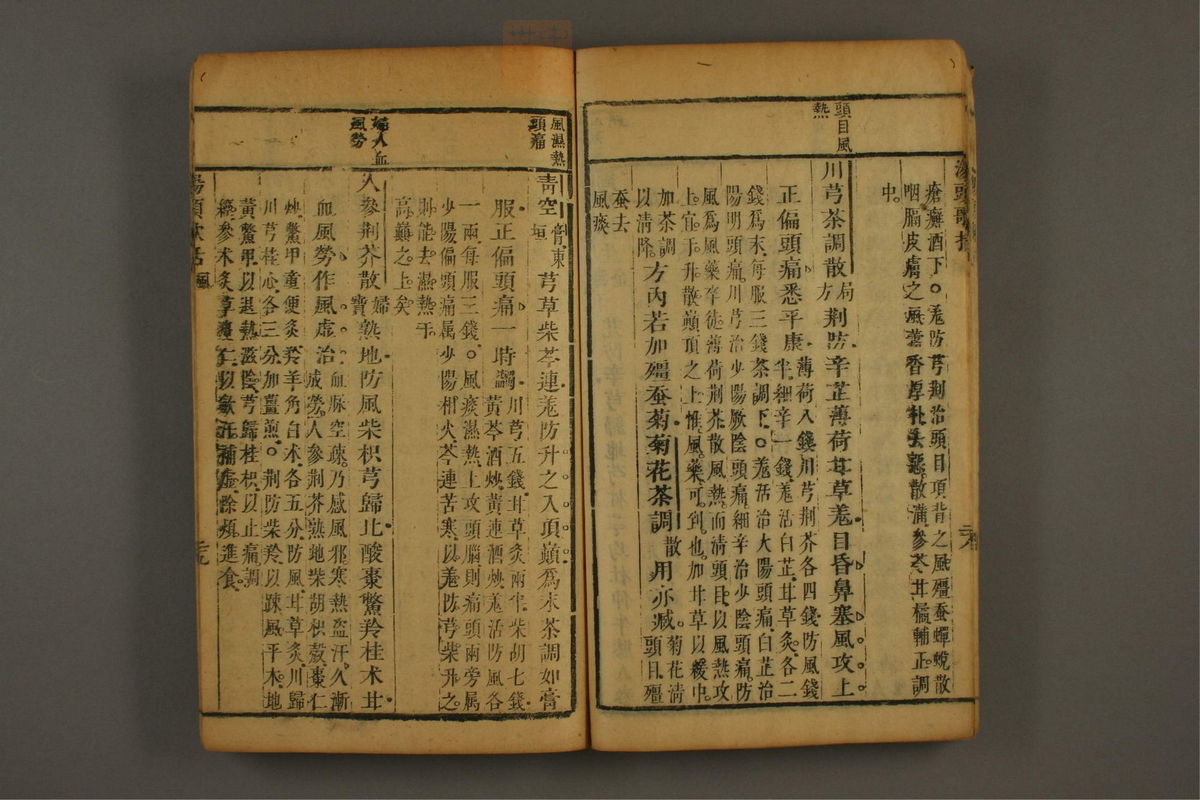 頭目風
熱
瘡癬酒下○羌防芎荆治頭目項背之風殭蚕蟬蛻散
咽膈皮膚之風藿香厚朴去惡散滿參苓甘橘輔正調
中
川芎茶調散局方荆防辛芷薄荷甘草羌目昏鼻塞風攻上
正偏頭痛悉平康薄荷八錢川芎荆芥各四錢防風錢
半細辛一錢羌活白芷甘草炙各二
錢為末每服三錢茶調下○羌活治太陽頭痛白芷治
陽明頭痛川芎治少陽厥陰頭痛細辛治少陰頭痛防
風為風藥卒徒薄荷荆芥散風熱而清頭目以風熱攻
上宜于升散巔頂之上惟風藥可到也加甘草以緩中
加茶調
以清降方內若加殭蚕菊菊花茶調散用亦臧菊花清
頭目殭
蚕去
風痰
風濕熱
頭痛
青空膏東垣芎草柴芩連羌防升之入頂巔為末茶調如膏
服正偏頭痛一時蠲川芎五錢甘草炙兩半柴胡七錢
黃芩酒炒黃連酒炒羌活防風各
一兩每服三錢○風痰濕熱上攻頭腦則痛頭兩旁属
少陽偏頭痛属少陽相火芩連苦寒以羌防芎柴升之
則能去濕熱于
高巔之上矣
婦人血
風勞
人參荆芥散婦寶熟地防風柴枳芎歸比酸棗鱉羚桂术甘
血風勞作風虛治血脉空疎乃感風邪寒熱盜汗久漸
成勞人參荆芥熟地柴胡枳殼棗仁
炒鱉甲童便炙羚羊角白术各五分防風甘草炙川歸
川芎桂心各三分加薑煎○荆防柴羚以疎風平木地
黃鱉甲以退熱滋陰芎歸桂枳以止痛調
經參术炙草棗仁以歛汗補虛除煩進食
湯頭歌括
風